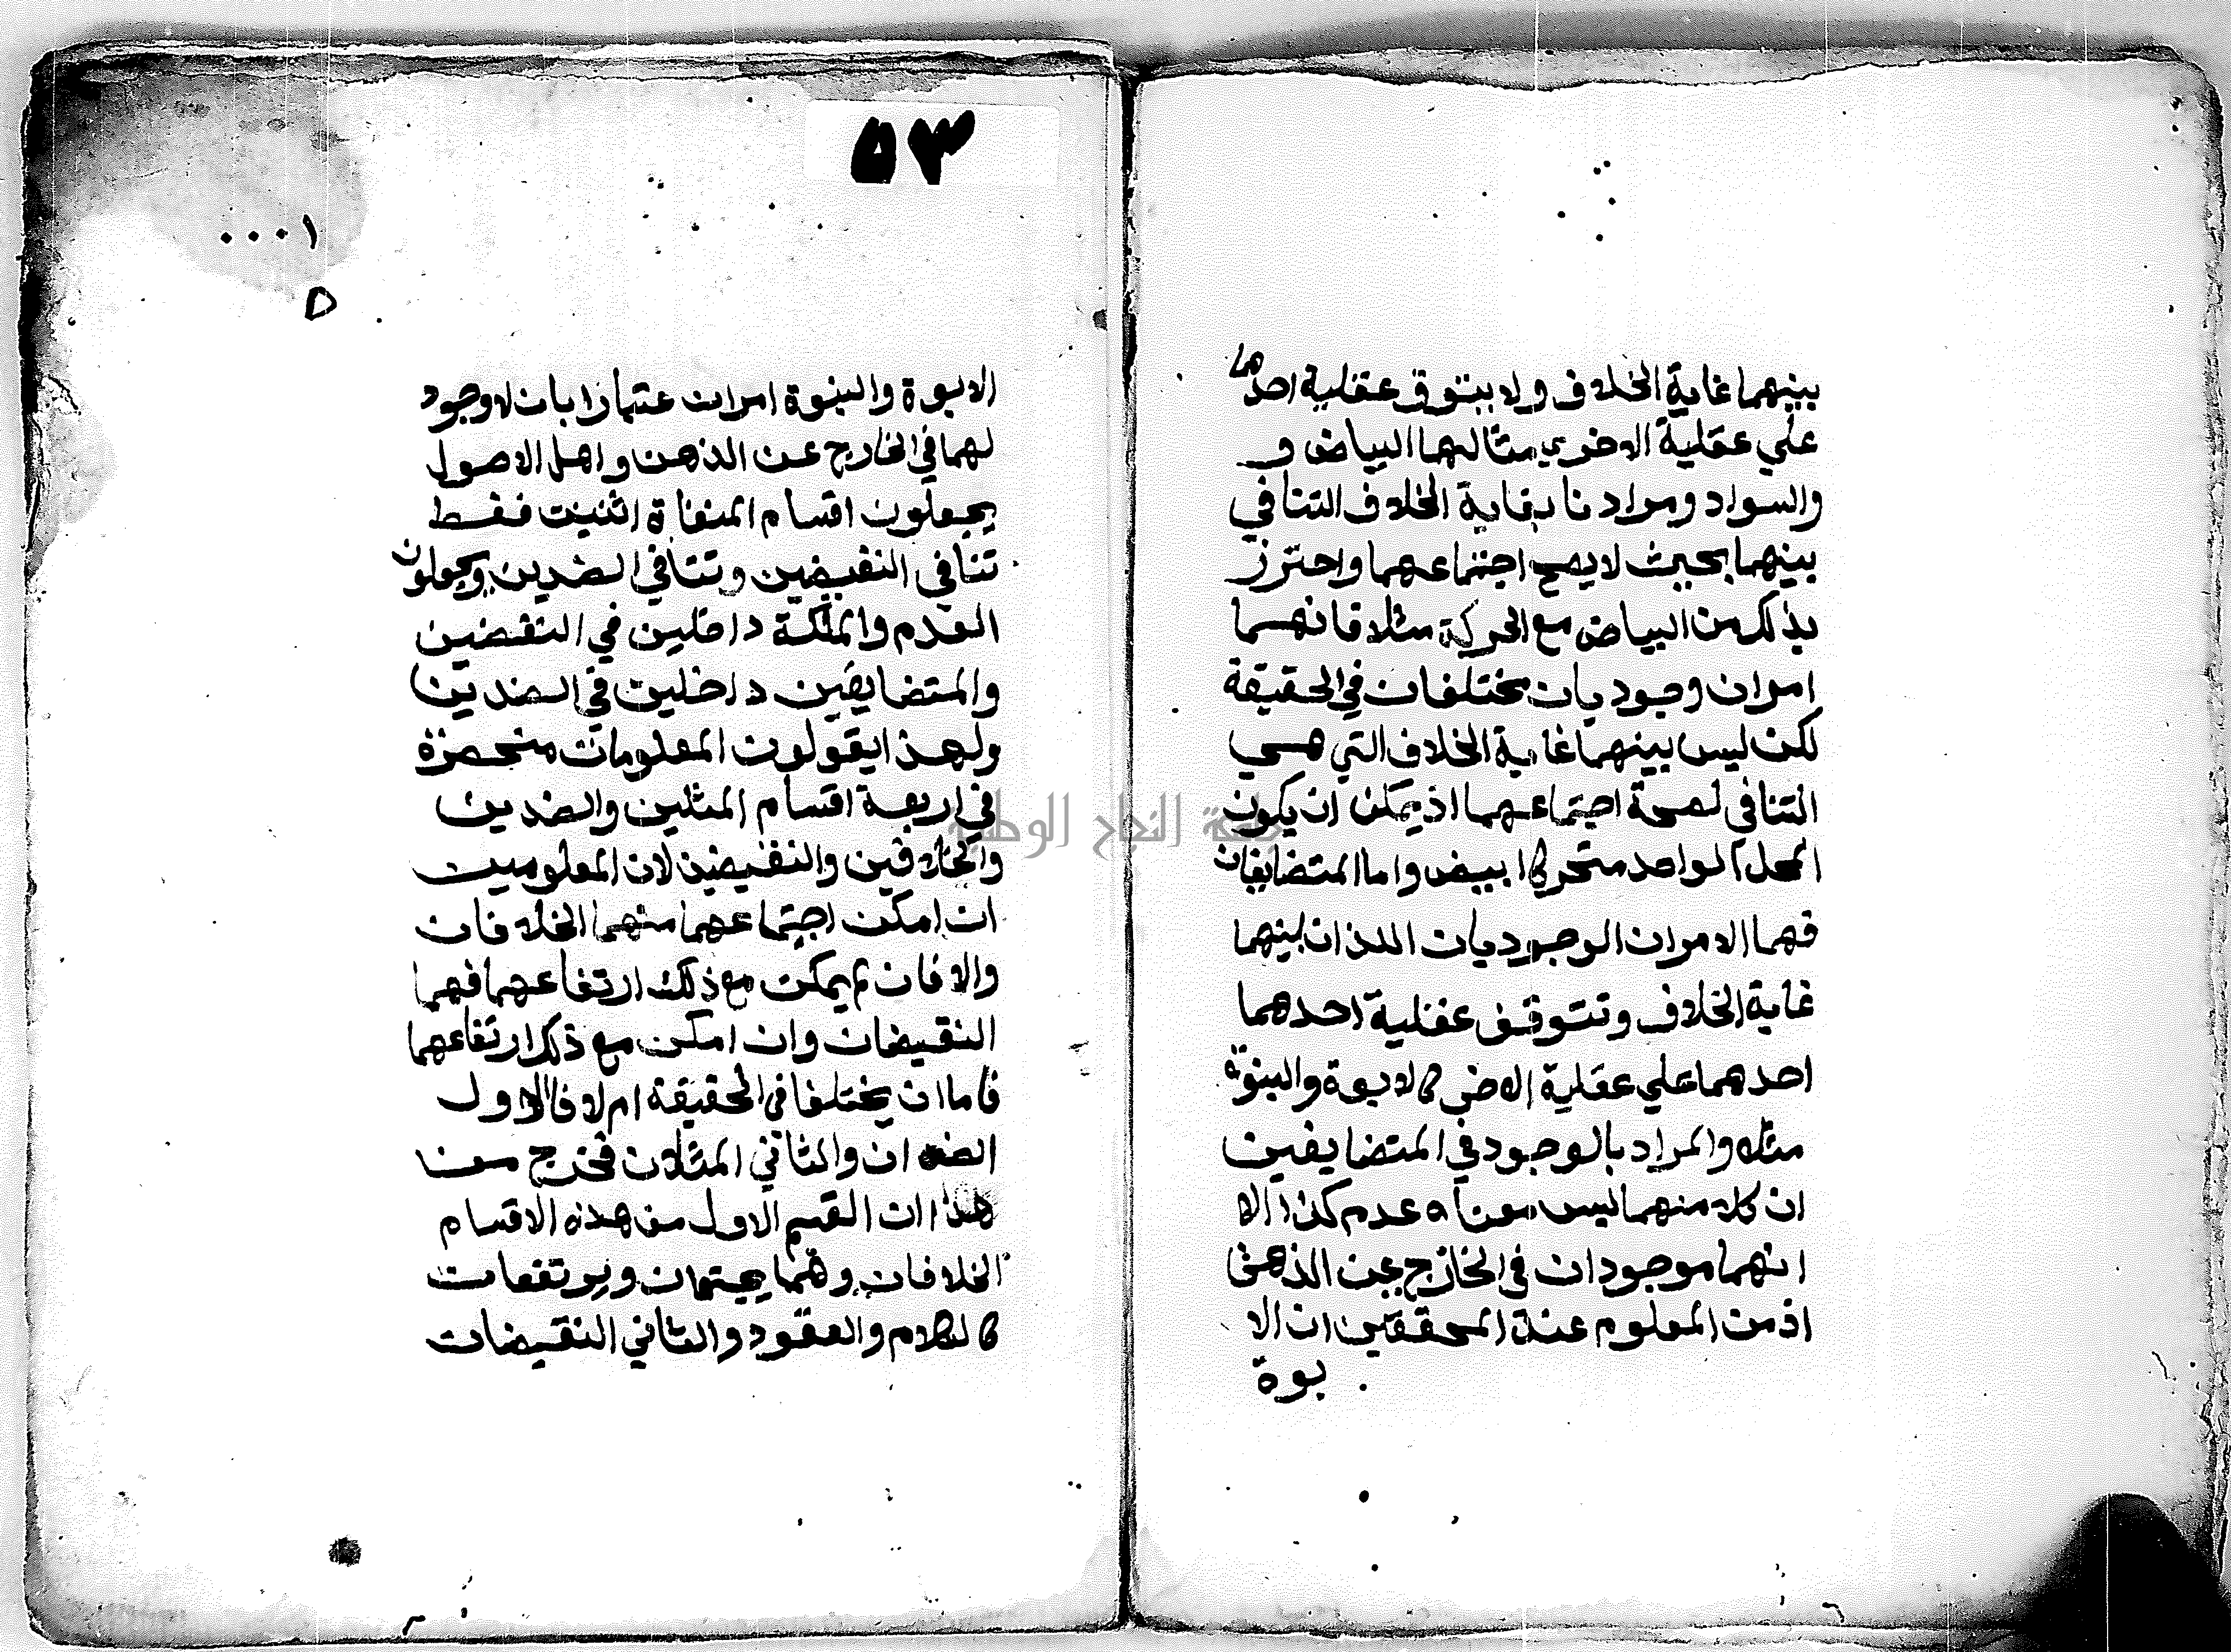 بينهما غاية الخلاف ولا يتوقف عقلية احدهما
علي عقلية الاخري مثالهما البياض و
والسواد ومرادنا بغاية الخلاف التنافي
بينهما بحيث لا يصح اجتماعهما واحترز
بذلك من البياض مع الحركة مثلا فانهما
امران وجوديان مختلفان في الحقيقة
لكن ليس بينهما غاية الخلاف التي هي
التنافي لصحة اجتماعهما اذ يمكن ان يكون
المحل الواحد متحركا ابيض واما المتضايفان
فهما الامران الوجوديان اللذان بينهما
غاية الخلاف وتتوقف عقلية احدهما
احدهما علي عقلية الاخر كالابوة والبنوة
مثلا والمراد بالوجود في المتضايفين
ان كلا منهما ليس معناه عدم كذا الا
انهما موجودان في الخارج عن الذهن
اذ من المعلوم عند المحققين ان الا
بوة
٥٣
٠٠٠١
٥
الابوة والبنوة امران عتباران لا وجود
لهما في الخارج عن الذهن واهل الاصول
يجعلون اقسام المنفاة اثنين فقط
تنافي النقيضين وتنافي الضدين ويجعلون
العدم والملكة داخلين في النقضين
والمتضايفين داخلين في الضدين
ولهذا يقولون المعلومات منحصرة
في اربعة اقسام المثلين والضدين
والخلافين والنقيضين لان المعلومين
ان امكن اجتماعهما منهما الخلافان
والا فان لم يمكن مع ذلك ارتفاعهما فهما
النقيضان وان امكن مع ذلك ارتفاعهما
فاما ان يختلفا في الحقيقة ام لا فالاول
الضدان والثاني المثلان فخرج من
هذا ان القسم الاول من هذه الاقسام
الخلافان وهما يجتمعان ويرتفعان
كالكلام والعقود والثاني النقيضان
جامعة النجاح الوطنية